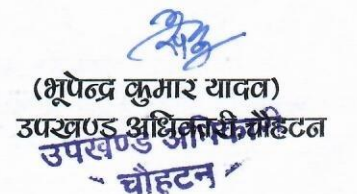 (भूपेन्द्र कुमार यादव)
उपखण्ड अधिकारी चौहटन
उपखण्ड अधिकारी
चौहटन